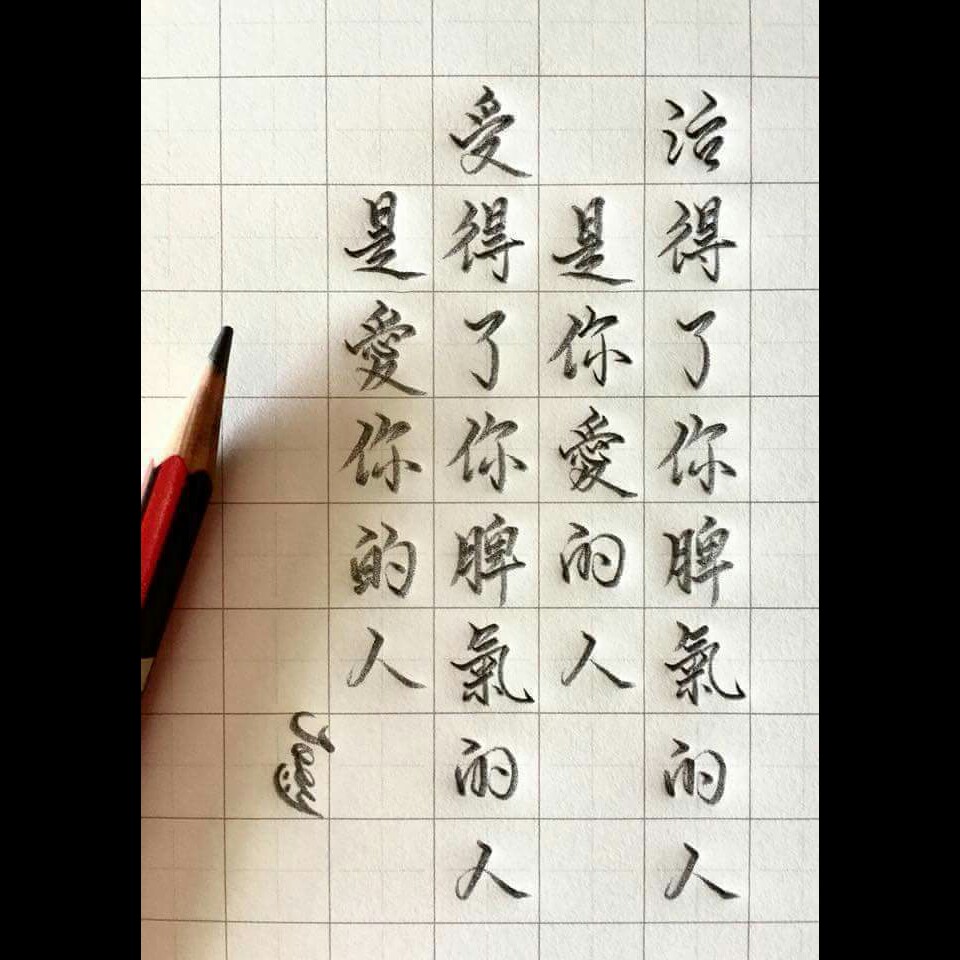 治得了你脾氣的人
是你愛的人
受得了你脾氣的人
是愛你的人
Jody